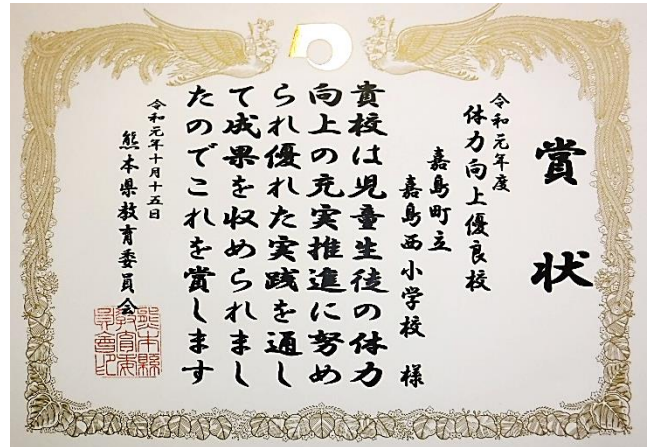 賞状
令和元年度
体力向上優良校
嘉島町立
嘉島西小学校 様
貴校は児童生徒の体力
向上の充実推進に努め
られ優れた実践を通し
て成果を収められまし
たのでこれを賞します
令和元年十月十五日
熊本県教育委員会
熊本縣
教育委
員會印